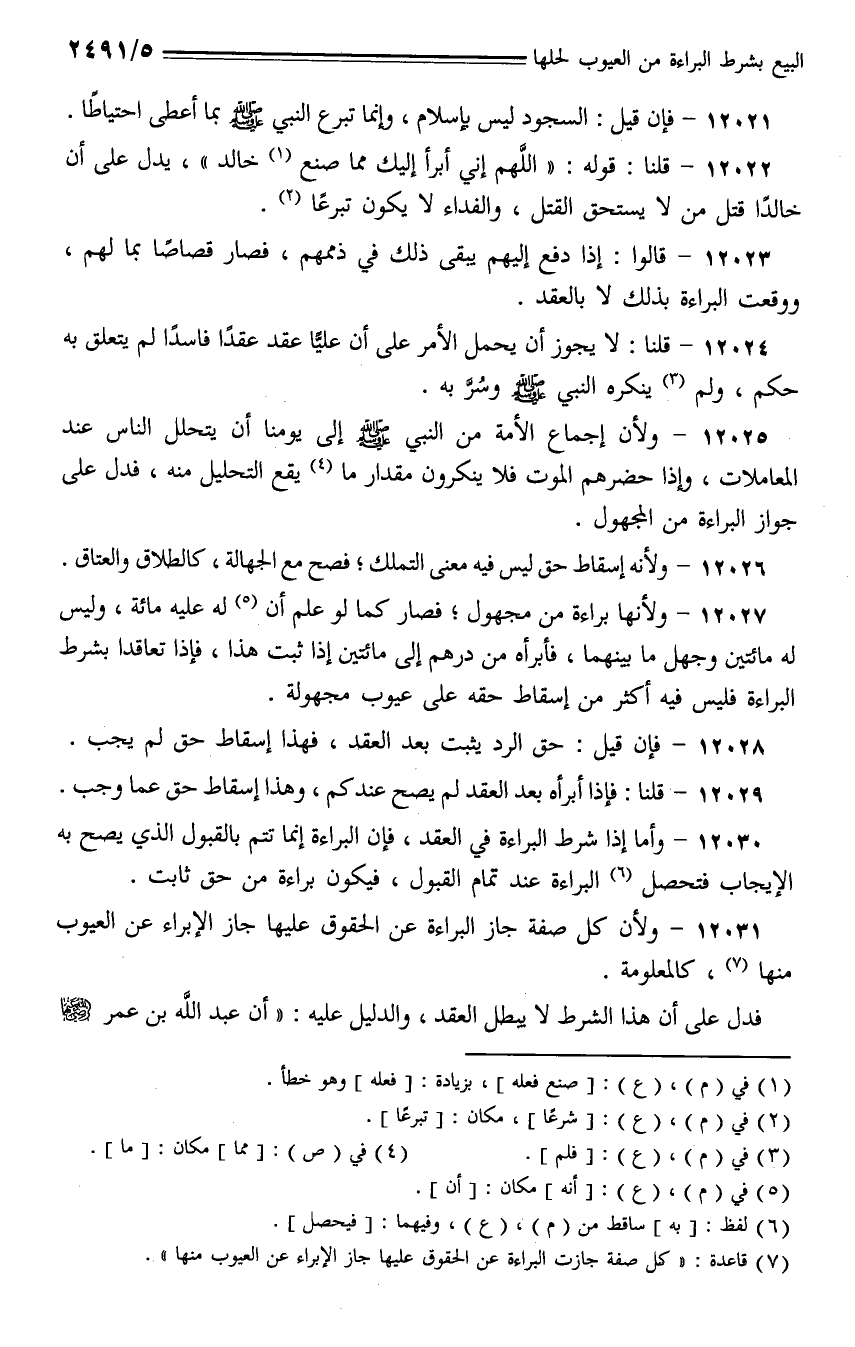 البيع بشرط البراءة من العيوب لحلها ٢٤٩١/٥
١٢٠٢١ - فإن قيل : السجود ليس بإسلام ، وإنما تبرع النبي ﷺ بما أعطى احتياطًا .
١٢٠٢٢ - قلنا : قوله : « اللَّهم إني أبرأ إليك مما صنع (١) خالد » ، يدل على أن
خالدًا قتل من لا يستحق القتل ، والفداء لا يكون تبرعًا (٢) .
١٢٠٢٣ - قالوا : إذا دفع إليهم يبقى ذلك في ذممهم ، فصار قصاصًا بما لهم ،
ووقعت البراءة بذلك لا بالعقد .
١٢٠٢٤ - قلنا : لا يجوز أن يحمل الأمر على أن عليًّا عقد عقدًا فاسدًا لم يتعلق به
حكم ، ولم (٣) ينكره النبي ﷺ وسُرَّ به .
١٢٠٢٥ - ولأن إجماع الأمة من النبي ﷺ إلى يومنا أن يتحلل الناس عند
المعاملات ، وإذا حضرهم الموت فلا ينكرون مقدار ما (٤) يقع التحليل منه ، فدل على
جواز البراءة من المجهول .
١٢٠٢٦ - ولأنه إسقاط حق ليس فيه معنى التملك ؛ فصح مع الجهالة ، كالطلاق والعتاق .
١٢٠٢٧ - ولأنها براءة من مجهول ؛ فصار كما لو علم أن (٥) له عليه مائة ، وليس
له مائتين وجهل ما بينهما ، فأبرأه من درهم إلى مائتين إذا ثبت هذا ، فإذا تعاقدا بشرط
البراءة فليس فيه أكثر من إسقاط حقه على عيوب مجهولة .
١٢٠٢٨ - فإن قيل : حق الرد يثبت بعد العقد ، فهذا إسقاط حق لم يجب .
١٢٠٢٩ - قلنا : فإذا أبرأه بعد العقد لم يصح عندكم ، وهذا إسقاط حق عما وجب .
١٢٠٣٠ - وأما إذا شرط البراءة في العقد ، فإن البراءة إنما تتم بالقبول الذي يصح به
الإيجاب فتحصل (٦) البراءة عند تمام القبول ، فيكون براءة من حق ثابت .
١٢٠٣١ - ولأن كل صفة جاز البراءة عن الحقوق عليها جاز الإبراء عن العيوب
منها (٧) ، كالمعلومة .
فدل على أن هذا الشرط لا يبطل العقد ، والدليل عليه : « أن عبد اللَّه بن عمر ﷠
(١) في ( م ) ، ( ع ) : [ صنع فعله ] ، بزيادة : [ فعله ] وهو خطأ .
(٢) في ( م ) ، ( ع ) : [ شرعًا ] ، مكان : [ تبرعًا ] .
(٣) في ( م ) ، ( ع ) : [ فلم ] . (٤) في ( ص ) : [ مما ] مكان : [ ما ] .
(٥) في ( م ) ، ( ع ) : [ أنه ] مكان : [ أن ] .
(٦) لفظ : [ به ] ساقط من ( م ) ، ( ع ) ، وفيهما : [ فيحصل ] .
(٧) قاعدة : « كل صفة جازت البراءة عن الحقوق عليها جاز الإبراء عن العيوب منها » .